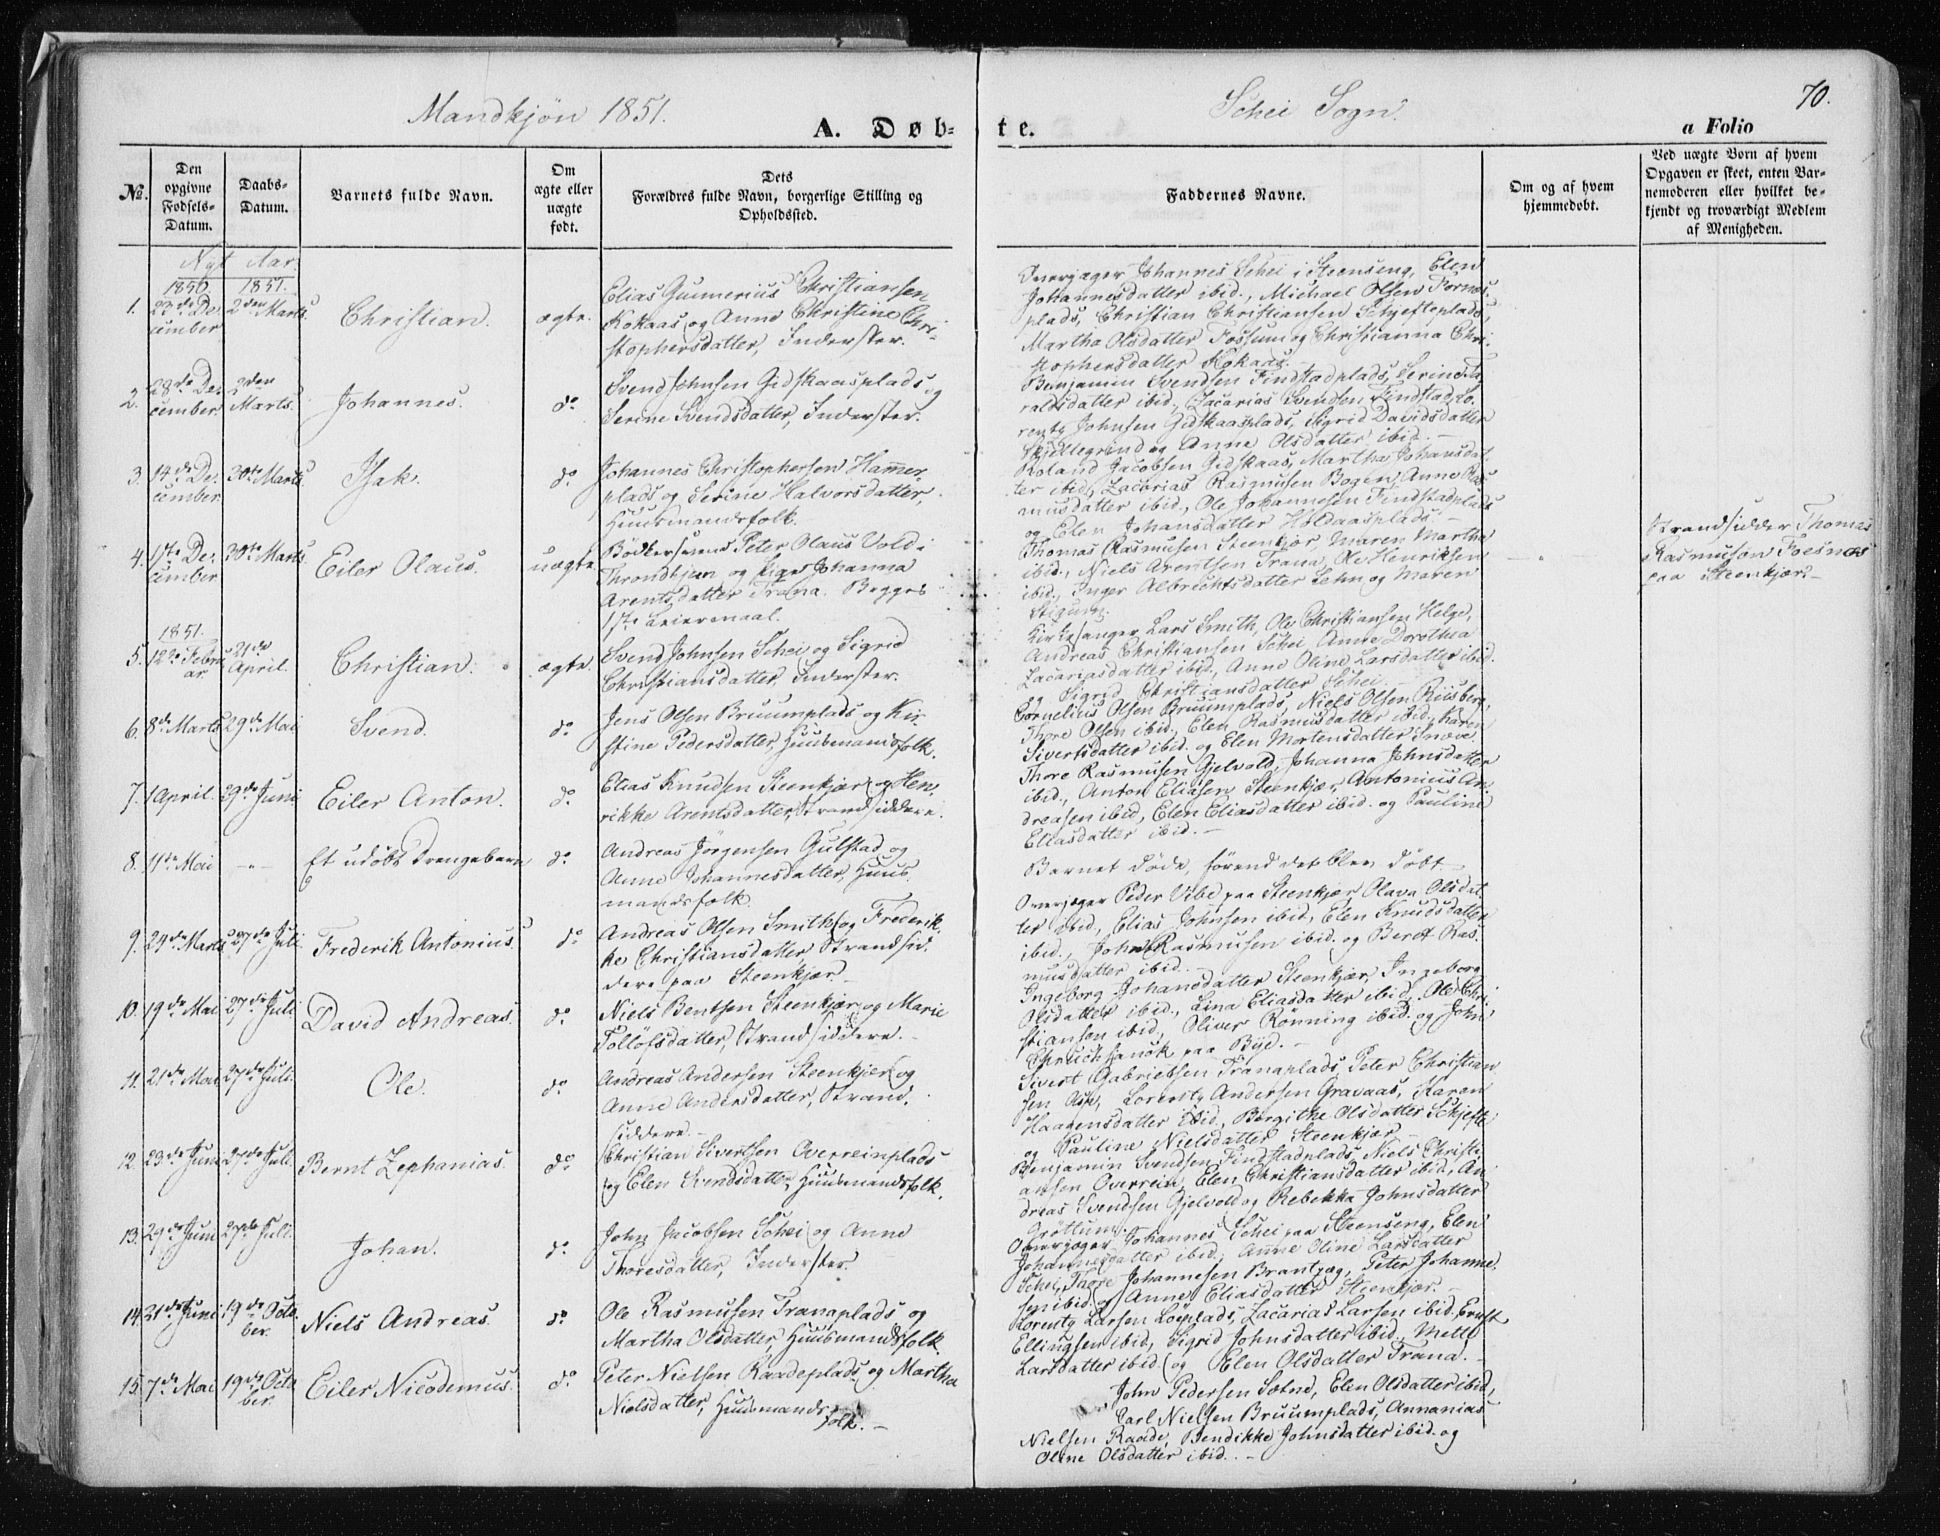 Mandkjøn 1851.
Schei Sogn.
70.
A. Døb-
te.
a Folio
No.
Den opgivne Fødsels-Datum.
Daabs-Datum.
Barnets fulde Navn.
Om ægte eller uægte født.
Dets
Forældres fulde Navn, borgerlige Stilling og
Opholdssted.
Faddernes Navne.
Om og af hvem
hjemmedøbt.
Ved uægte Børn af hvem
Opgaven er skeet, enten Bar-
nemoderen eller hvilket be-
kjendt og troværdigt Medlem
af Menigheden.
Nyt Aar.
1850. 1851.
1. 23de De-
cember
2den Marts.
Christian.
ægte.
Elias Gunnerius Christiansen
Kokaas og Anne Christine Chri-
stophersdatter, Inderster.
Overjæger Johannes Schei i Steenseng, Elen
Johannesdatter ibid., Michael Olsen Fornes-
plads, Christian Christiansen Schjefteplads,
Martha Olsdatter Fossum og Christianna Chri-
stophersdatter Kokaas.
2. 28de De-
cember
2den
Marts.
Johannes.
do
Svend Johnsen Gidskaasplads og
Serine Svendsdatter, Inderster.
Benjamin Svendsen Findstadplads, Serine Ta-
raldsdatter ibid., Zacarias Svendsen Findstad, Lo-
rentz Johnsen Gidskaasplads, Sigrid Davidsdatter
Skjellegrind og Anne Olsdatter ibid. –
3. 14de De-
cember
30te Marts
Isak.
do
Johannes Christophersen Hammer-
plads og Serine Halvorsdatter,
Huusmandsfolk.
Roland Jacobsen Gidskaas, Martha Johansdat-
ter ibid, Zacarias Rasmusen Bogen, Anne Ras-
musdatter ibid., Ole Johannesen Findstadplads
og Elen Johansdatter Holdaasplads –
4. 1ste De-
cember
30te Marts
Eiler Olaus.
uægte
Bödkersvend Peter Olaus Vold i
Throndhjem og Pige Johanna
Arentsdatter Trana. Begges
1ste Leiermaal.
Thomas Rasmusen Steenkjær, Maren Martha
ibid., Niels Arentsen Trana, Ole Henriksen
ibid., Inger Albrechtsdatter Lehn og Maren
Stigum.
Strandsidder Thomas
Rasmuson Foesnes
paa Steenkjær. –
1851.
5. 12te Febru-
ar
21de
April.
Christian.
ægte.
Svend Johnsen Schei og Sigrid
Christiansdatter, Inderster.
Kirkesanger Lars Smith, Ole Christiansen Helge,
Andreas Christiansen Schei, Anne Dorothea
Zacariasdatter ibid, Anne Oline Larsdatter ibid.
og Sigrid Christiansdatter Schei. –
6. 8de Marts
29de Mai
Svend.
do
Jens Olsen Bruumplads og Kir-
stine Pedersdatter, Huusmandsfolk.
Cornelius Olsen Bruumplads, Niels Olsen Riisberg,
Thore Olsen ibid, Elen Rasmusdatter ibid, Karen
Sivertsdatter ibid. og Elen Mortensdatter Snøve
7. 1 April.
29de Juni
Eiler Anton.
do.
Elias Knudsen Steenkjær og Hen-
rikke Arentsdatter, Strandsiddere.
Thore Rasmusen Gjelvold, Johanna Johnsdatter
ibid., Anton Eliasen Steenkjær, Antonius An-
dreasen ibid, Elen Eliasdatter ibid. og Pauline
Eliasdatter ibid. –
8. 11te Mai
–"–
Et udöbt Drengebarn
do
Andreas Jörgensen Gulstad og
Anne Johannesdatter, Huus-
mandsfolk.
Barnet döde, förend det blev döbt
9. 24de Marts
27de Juli.
Frederik Antonius.
do
Andreas Olsen Smith og Frederik-
ke Christiansdatter, Strandsid-
dere paa Steenkjær.
Overjæger Peder Vibe paa Steenkjær, Olava Olsdat-
ter ibid, Elias Johnsen ibid, Elen Knudsdatter
ibid., John Rasmusen ibid. og Beret Ras-
musdatter ibid. –
10. 19de Mai
27de Juli
David Andreas.
do.
Niels Bentsen Steenkjær og Marie
Tollöfsdatter, Strandsiddere. –
Ingeborg Johansdatter Steenkjær, Ingeborg
Olsdatter ibid., Lina Eliasdatter ibid., Ole Chri-
stiansen ibid., Oliver Rönning ibid. og John
paa Bye. –
11. 21de Mai
27de Juli.
Ole.
do
Andreas Andersen Steenkjær og
Anne Andersdatter, Strand-
siddere. –
Sivert Gabrielsen Tranaplads, Peter Christian-
sen Asp, Lorentz Andersen Gravaas, Karen
Haagensdatter ibid., Bergithe Olsdatter Schjefte
og Pauline Nielsdatter Steenkjær –
12. 23de Juni
27de Juli
Bernt Zephanias.
do
Christian Sivertsen Overreinplads
og Elen Svendsdatter, Huusmandsfolk.
Benjamin Svendsen Findstadplads, Niels Christi-
ansen Overrein, Elen Christiansdatter ibid, An-
dreas Svendsen Gjelvold og Rebekka Johnsdatter
Gröttum.
13. 29de Juni
27de Juli.
Johan.
do.
John Jacobsen Schei og Anne
Thoresdatter, Inderster.
Overjæger Johannes Schei paa Steenseng, Elen
Johannesdatter ibid., Anne Oline Larsdatter
Schei, Thore Johannesen Brantzæg, Peter Johanne-
sen ibid. og Anne Eliasdatter Steenkjær. –
14. 21de Juni
19de Octo-
ber.
Niels Andreas.
do.
Ole Rasmusen Tranaplads og
Martha Olsdatter, Huusmandsfolk.
Lorentz Larsen Löeplads, Zacarias Larsen ibid. Ernst
Ellingsen ibid, Sigrid Johnsdatter ibid., Mette
Larsdatter ibid. og Elen Olsdatter Trana. –
15. 7de Mai
19de Octo-
ber.
Eiler Nicodemus.
do
Peter Nielsen Raadeplads og Martha
Nielsdatter, Huusmands-
folk. –
John Pedersen Sætne, Elen Olsdatter ibid,
Carl Nielsen Bruumplads, Annanias
Nielsen Raade, Bendikke Johnsdatter ibid. og
Oline Olsdatter ibid. –